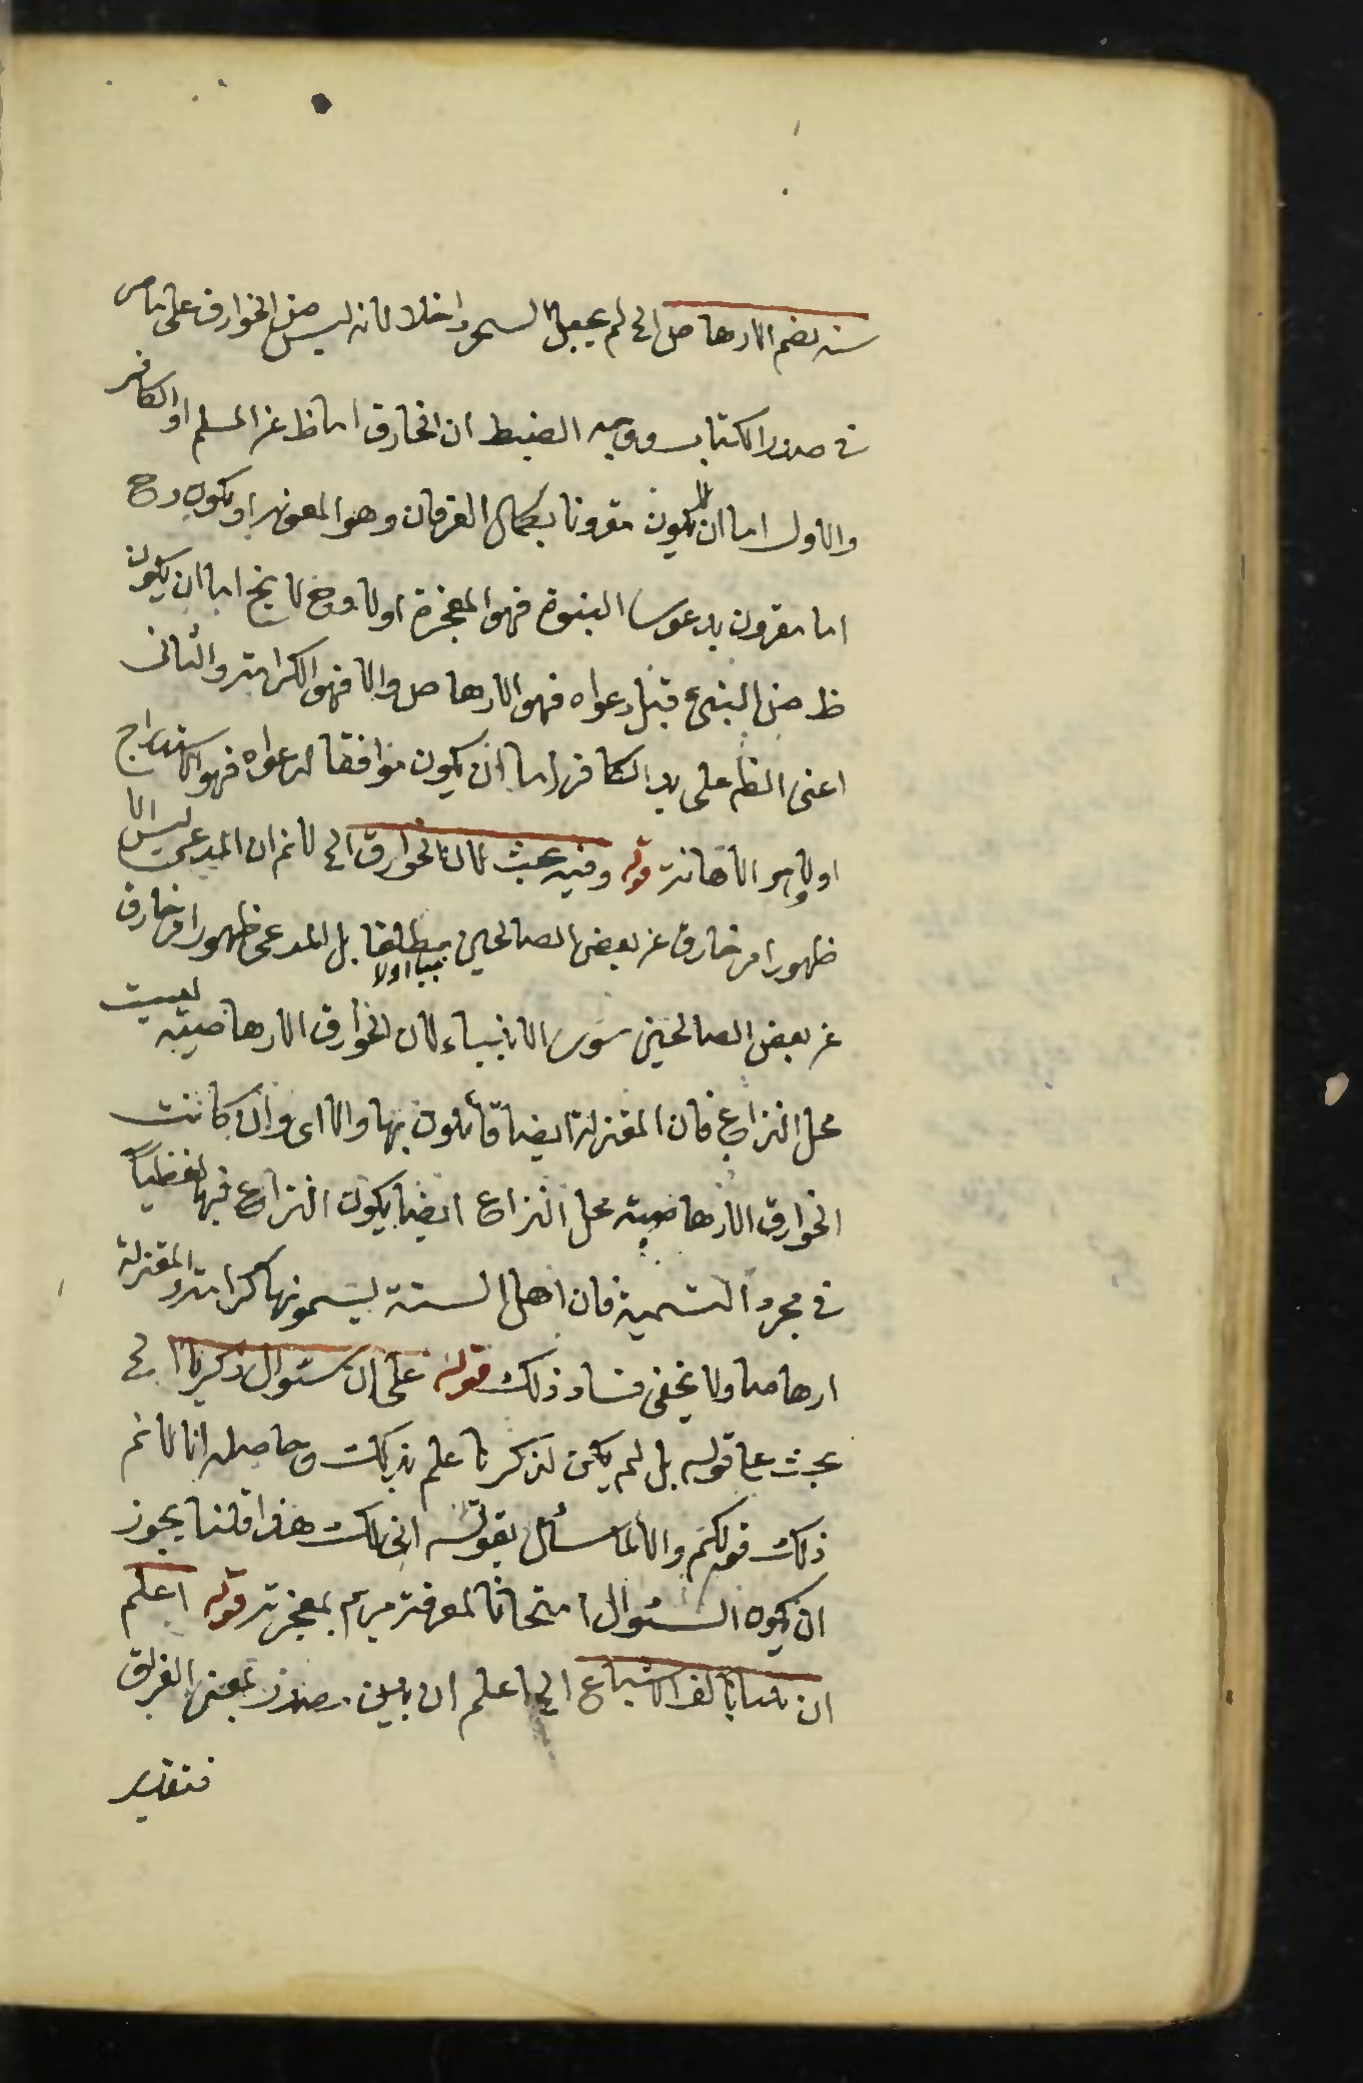 ستة بضم الارهاص الخ لم يجعل السحر داخلا لانه ليس من الخوارق على ما مر
فى صدر الكتاب ووجه الضبط ان الخارق اما ظ عن المسلم او الكافر
والاول اما ان لا يكون مقرونا بكمال العرفان وهو المعونة او يكون وح
اما مقرون بدعوى النبوة فهو المعجزة او لا وح لا يخ اما ان يكون
ظ من النبى قبل دعواه فهو الارهاص والا فهو الكرامة والثانى
اعنى الظ على يد الكافر اما ان يكون موافقا لدعواه فهو الاستدراج
او لا وهو الاهانة قوله وفيه بحث لان الخوارق الخ لا نم ان المدعى ليس الا
ظهور امر خارق عن بعض الصالحين مطلقا بل المدعى ظهور امر خارق
نبيا او لا
عن بعض الصالحين سوى الانبياء لان الخوارق الارهاصية ليست
محل النزاع فان المعتزلة ايضا قائلون بها والا اى وان كانت
الخوارق الارهاصية محل النزاع ايضا يكون النزاع فيها لفظياً
فى مجرد التسمية فان اهل السنة يسمونها كرامة والمعتزلة
ارهاصا ولا يخفى فساد ذلك قوله على ان سئوال زكريا الخ
بحث على قوله بل لم يكن لزكريا علم بذلك وحاصله انا لا نم
ذلك قولكم والا لما سأل بقوله انى لك هذا قلنا يجوز
ان يكون السئوال امتحانا لمعرفة مريم بمعجزته قوله اعلم
ان بينا بالف الاشباع الخ اعلم ان بين مصدر بمعنى الفراق
فتقدير